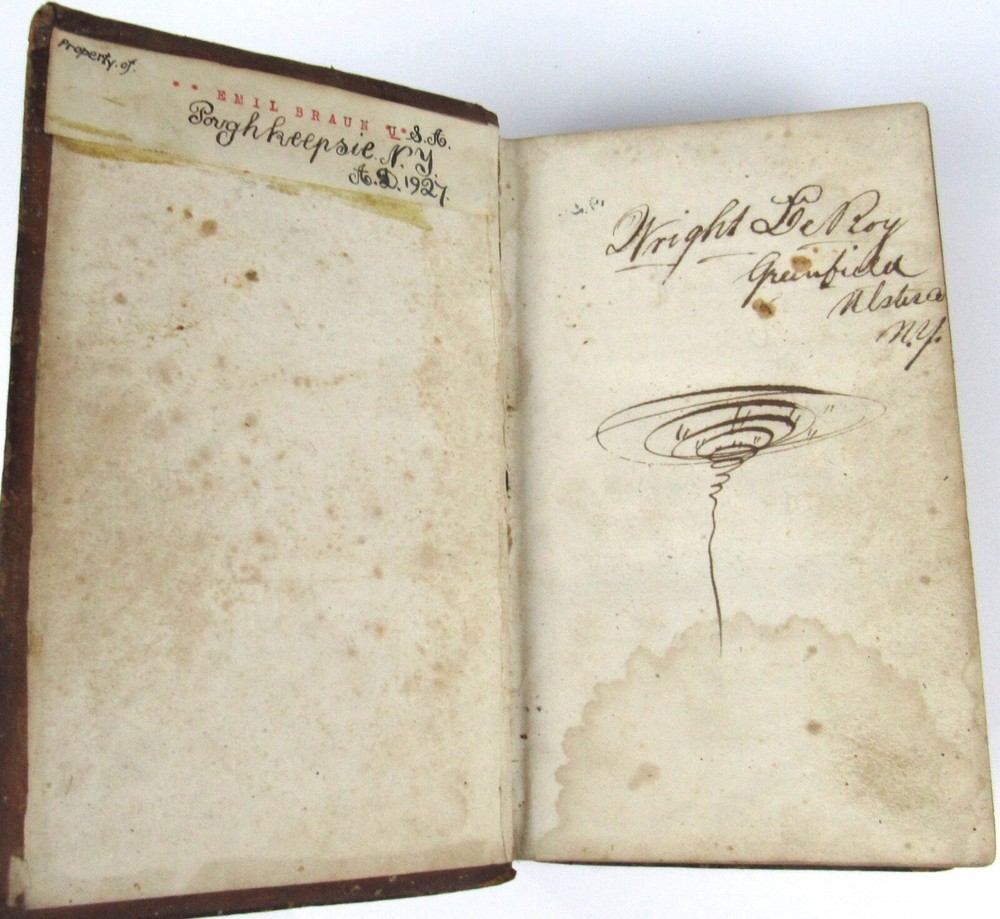 Property of.
** EMIL BRAUN U.S.A.
Poughkeepsie. N.Y.
A.D. 1927.
Wright LeRoy
Greenfield
Ulster Co
N.Y.